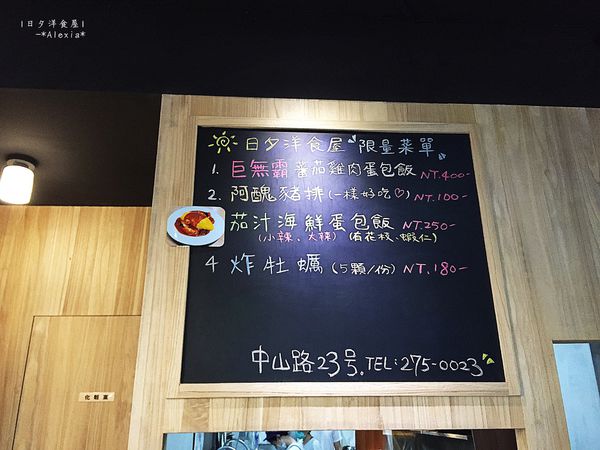 |日夕洋食屋|
-*Alexia*
日夕洋食屋 限量菜單
1. 巨無霸蕃茄雞肉蛋包飯 NT.400-
2. 阿醜豬排(一樣好吃♡) NT.100-
茄汁海鮮蛋包飯 NT.250-
(小辣、大辣) (有花枝、蝦仁)
4 炸牡蠣 (5顆/份) NT.180-
中山路23号. TEL:275-0023
化粧室